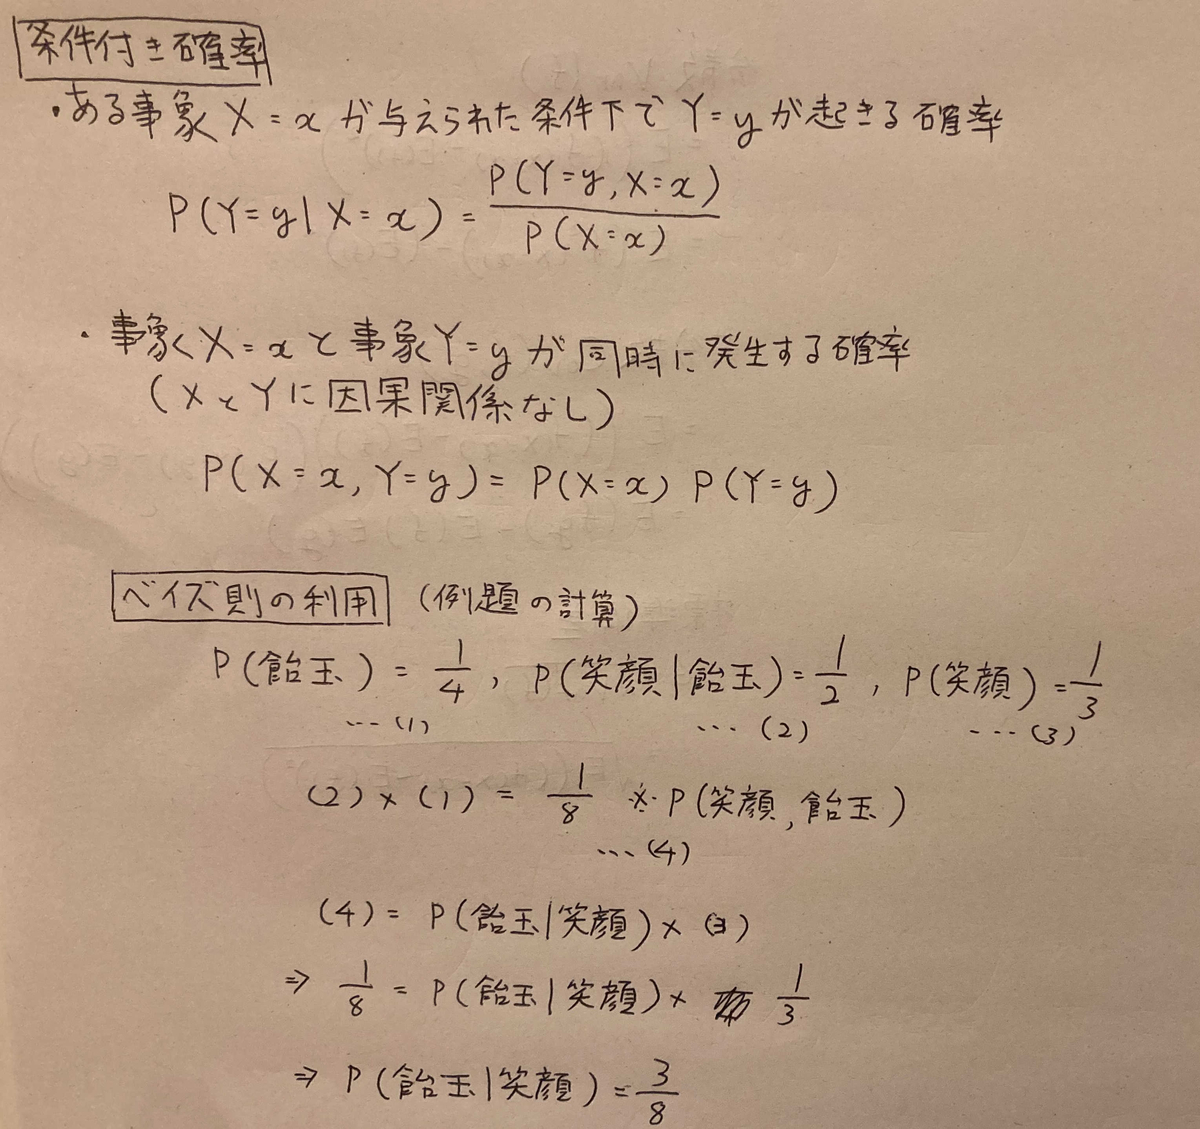 条件付き確率
・ある事象X=xが与えられた条件下でY=yが起きる確率
P(Y=y|X=x) = P(Y=y, X=x) / P(X=x)
・事象X=xと事象Y=yが同時に発生する確率
(XとYに因果関係なし)
P(X=x, Y=y) = P(X=x) P(Y=y)
ベイズ則の利用 (例題の計算)
P(飴玉) = 1/4, P(笑顔|飴玉) = 1/2, P(笑顔) = 1/3
…(1) …(2) …(3)
(2)×(1) = 1/8 ※P(笑顔, 飴玉)
…(4)
(4) = P(飴玉|笑顔)×(3)
⇒ 1/8 = P(飴玉|笑顔)× 1/3
⇒ P(飴玉|笑顔) = 3/8